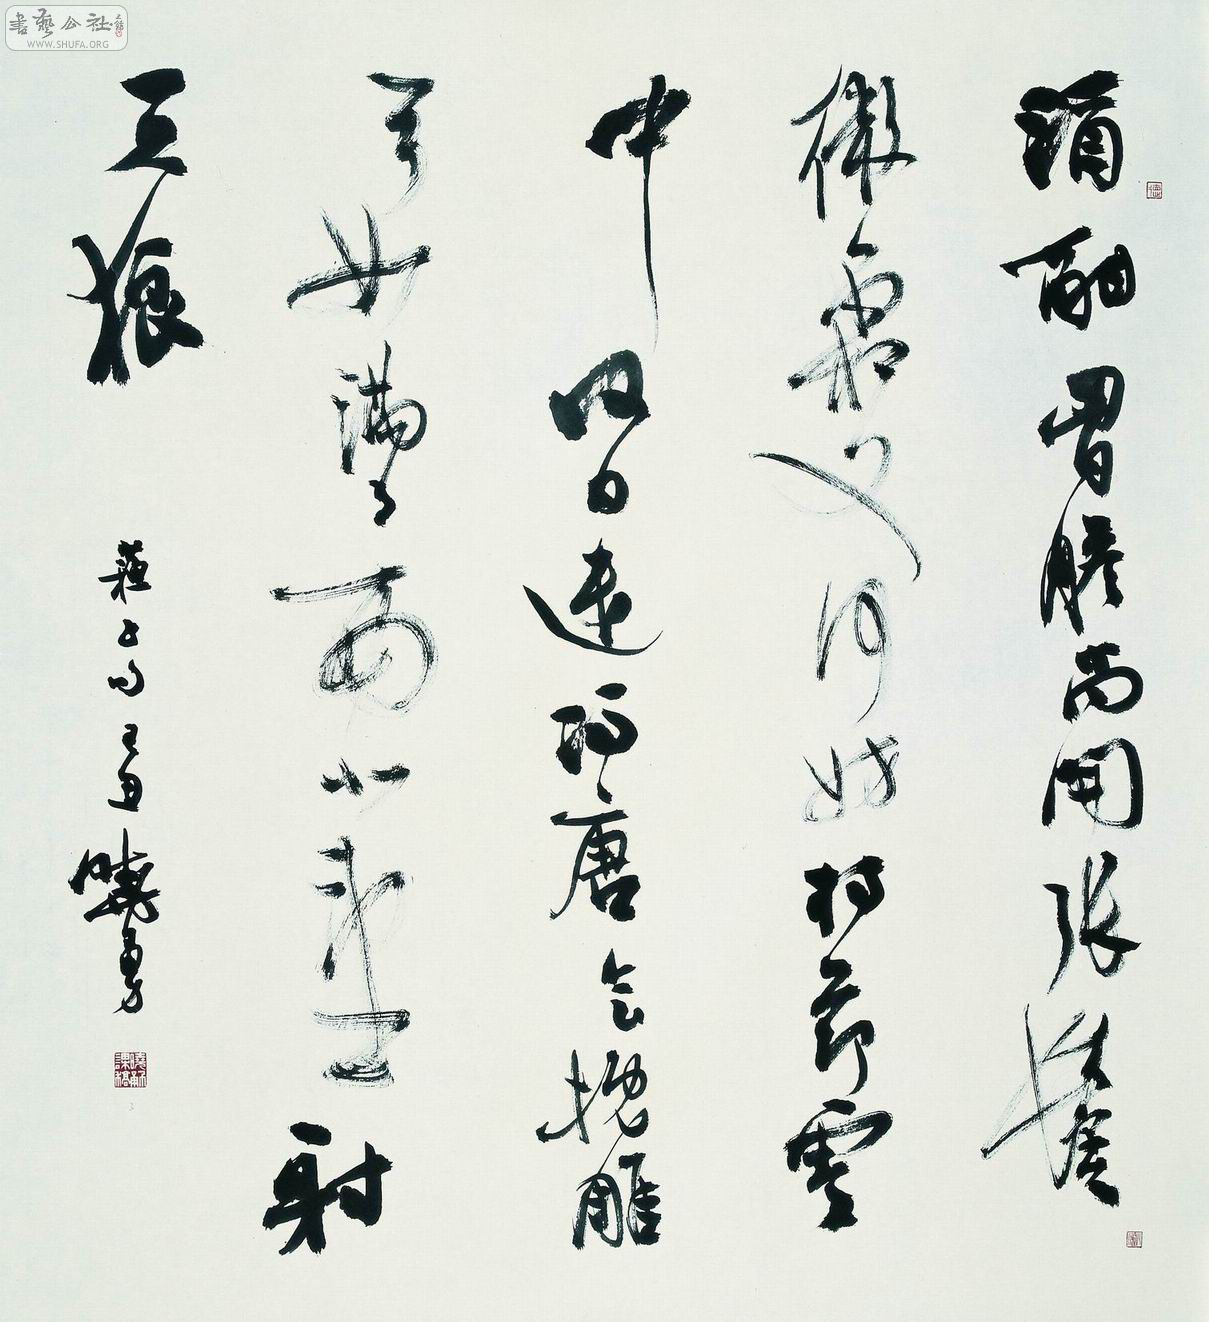 書藝公社
WWW.SHUFA.ORG
酒酣胸膽尚開張鬢
微霜又何妨持節雲
中何日遣馮唐會挽雕
弓如滿月西北望射
天狼
蘇 曉勇